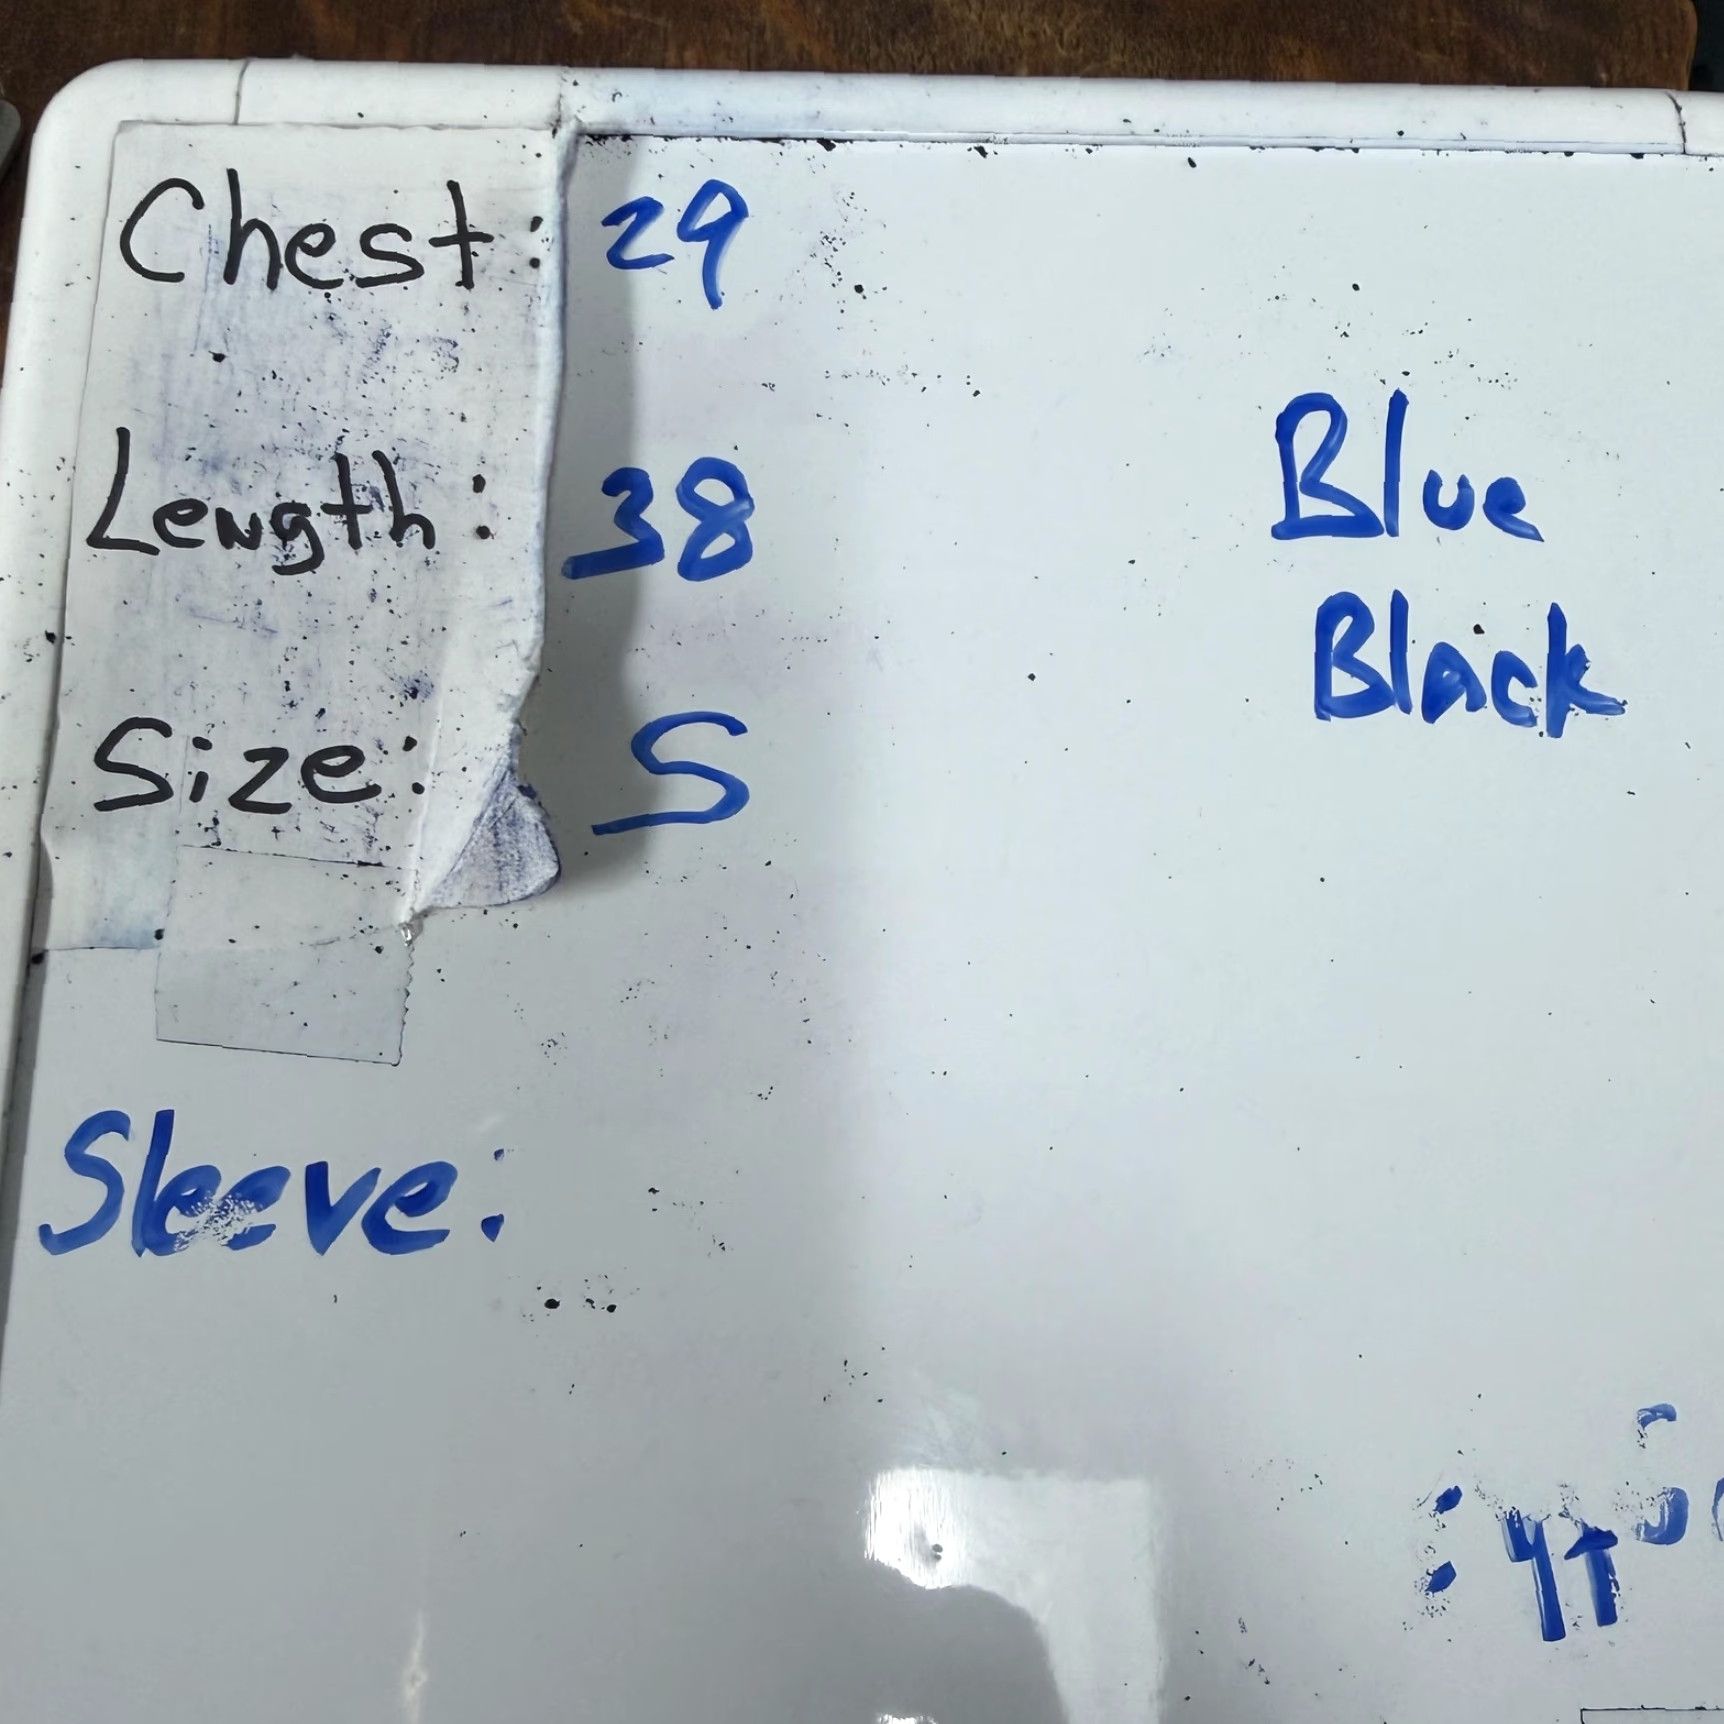 Chest: 29
Length: 38
Blue
Black
Size: S
Sleeve: